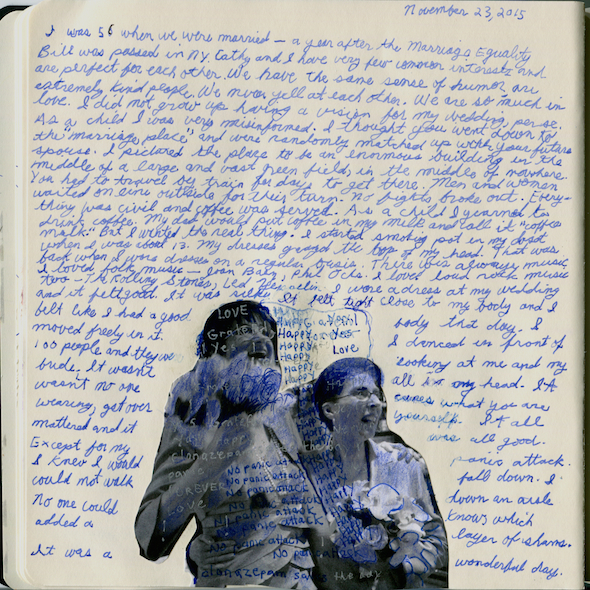 November 23, 2015
I was 56 when we were married — a year after the Marriage Equality
Bill was passed in NY. Cathy and I have very few common interests and
are perfect for each other. We have the same sense of humor are
extremely kind people. We never yell at each other. We are so much in
love. I did not grow up having a vision for my wedding, per se.
As a child I was very misinformed. I thought you went down to
the "marriage place" and were randomly matched up with your future
spouse. I pictured the place to be an enormous building in the
middle of a large and vast green field in the middle of nowhere.
You had to travel by train for days to get there. Men and women
waited on line outside for their turn. No fights broke out. Every-
thing was civil and coffee was served. As a child I yearned to
drink coffee. My dad would put coffee in my milk and call it "coffee
milk." But I wanted the real thing. I started smoking pot in my
when I was about 13. My dresses grazed the top of my head. That was
back when I wore dresses on a regular basis. There was always music
I loved folk music — Joan Baez, Phil Ochs. I loved loud rock music
too — The Rolling Stones, Led Zeppelin. I wore a dress at my wedding
and it felt good. It was silky. It felt tight close to my body and I
felt like I had a good body that day. I
moved freely in it. I danced in front of
100 people and they were looking at me and my
bride. It wasn't all in my head. It
wasn't no one cares what you are
wearing, get over yourself. It all
mattered and it was all good.
Except for my panic attack.
I knew I would fall down. I
could not walk down an aisle
No one could knows which
added a layer of shame.
It was a wonderful day.
LOVE
Happy
Happy
Happy
Happy
Yes
Love
FOREVER
Love
No panic attack
No panic attack
No panic attack
No panic attack
No panic attack
No panic attack
No panic attack
clonazepam saves the day